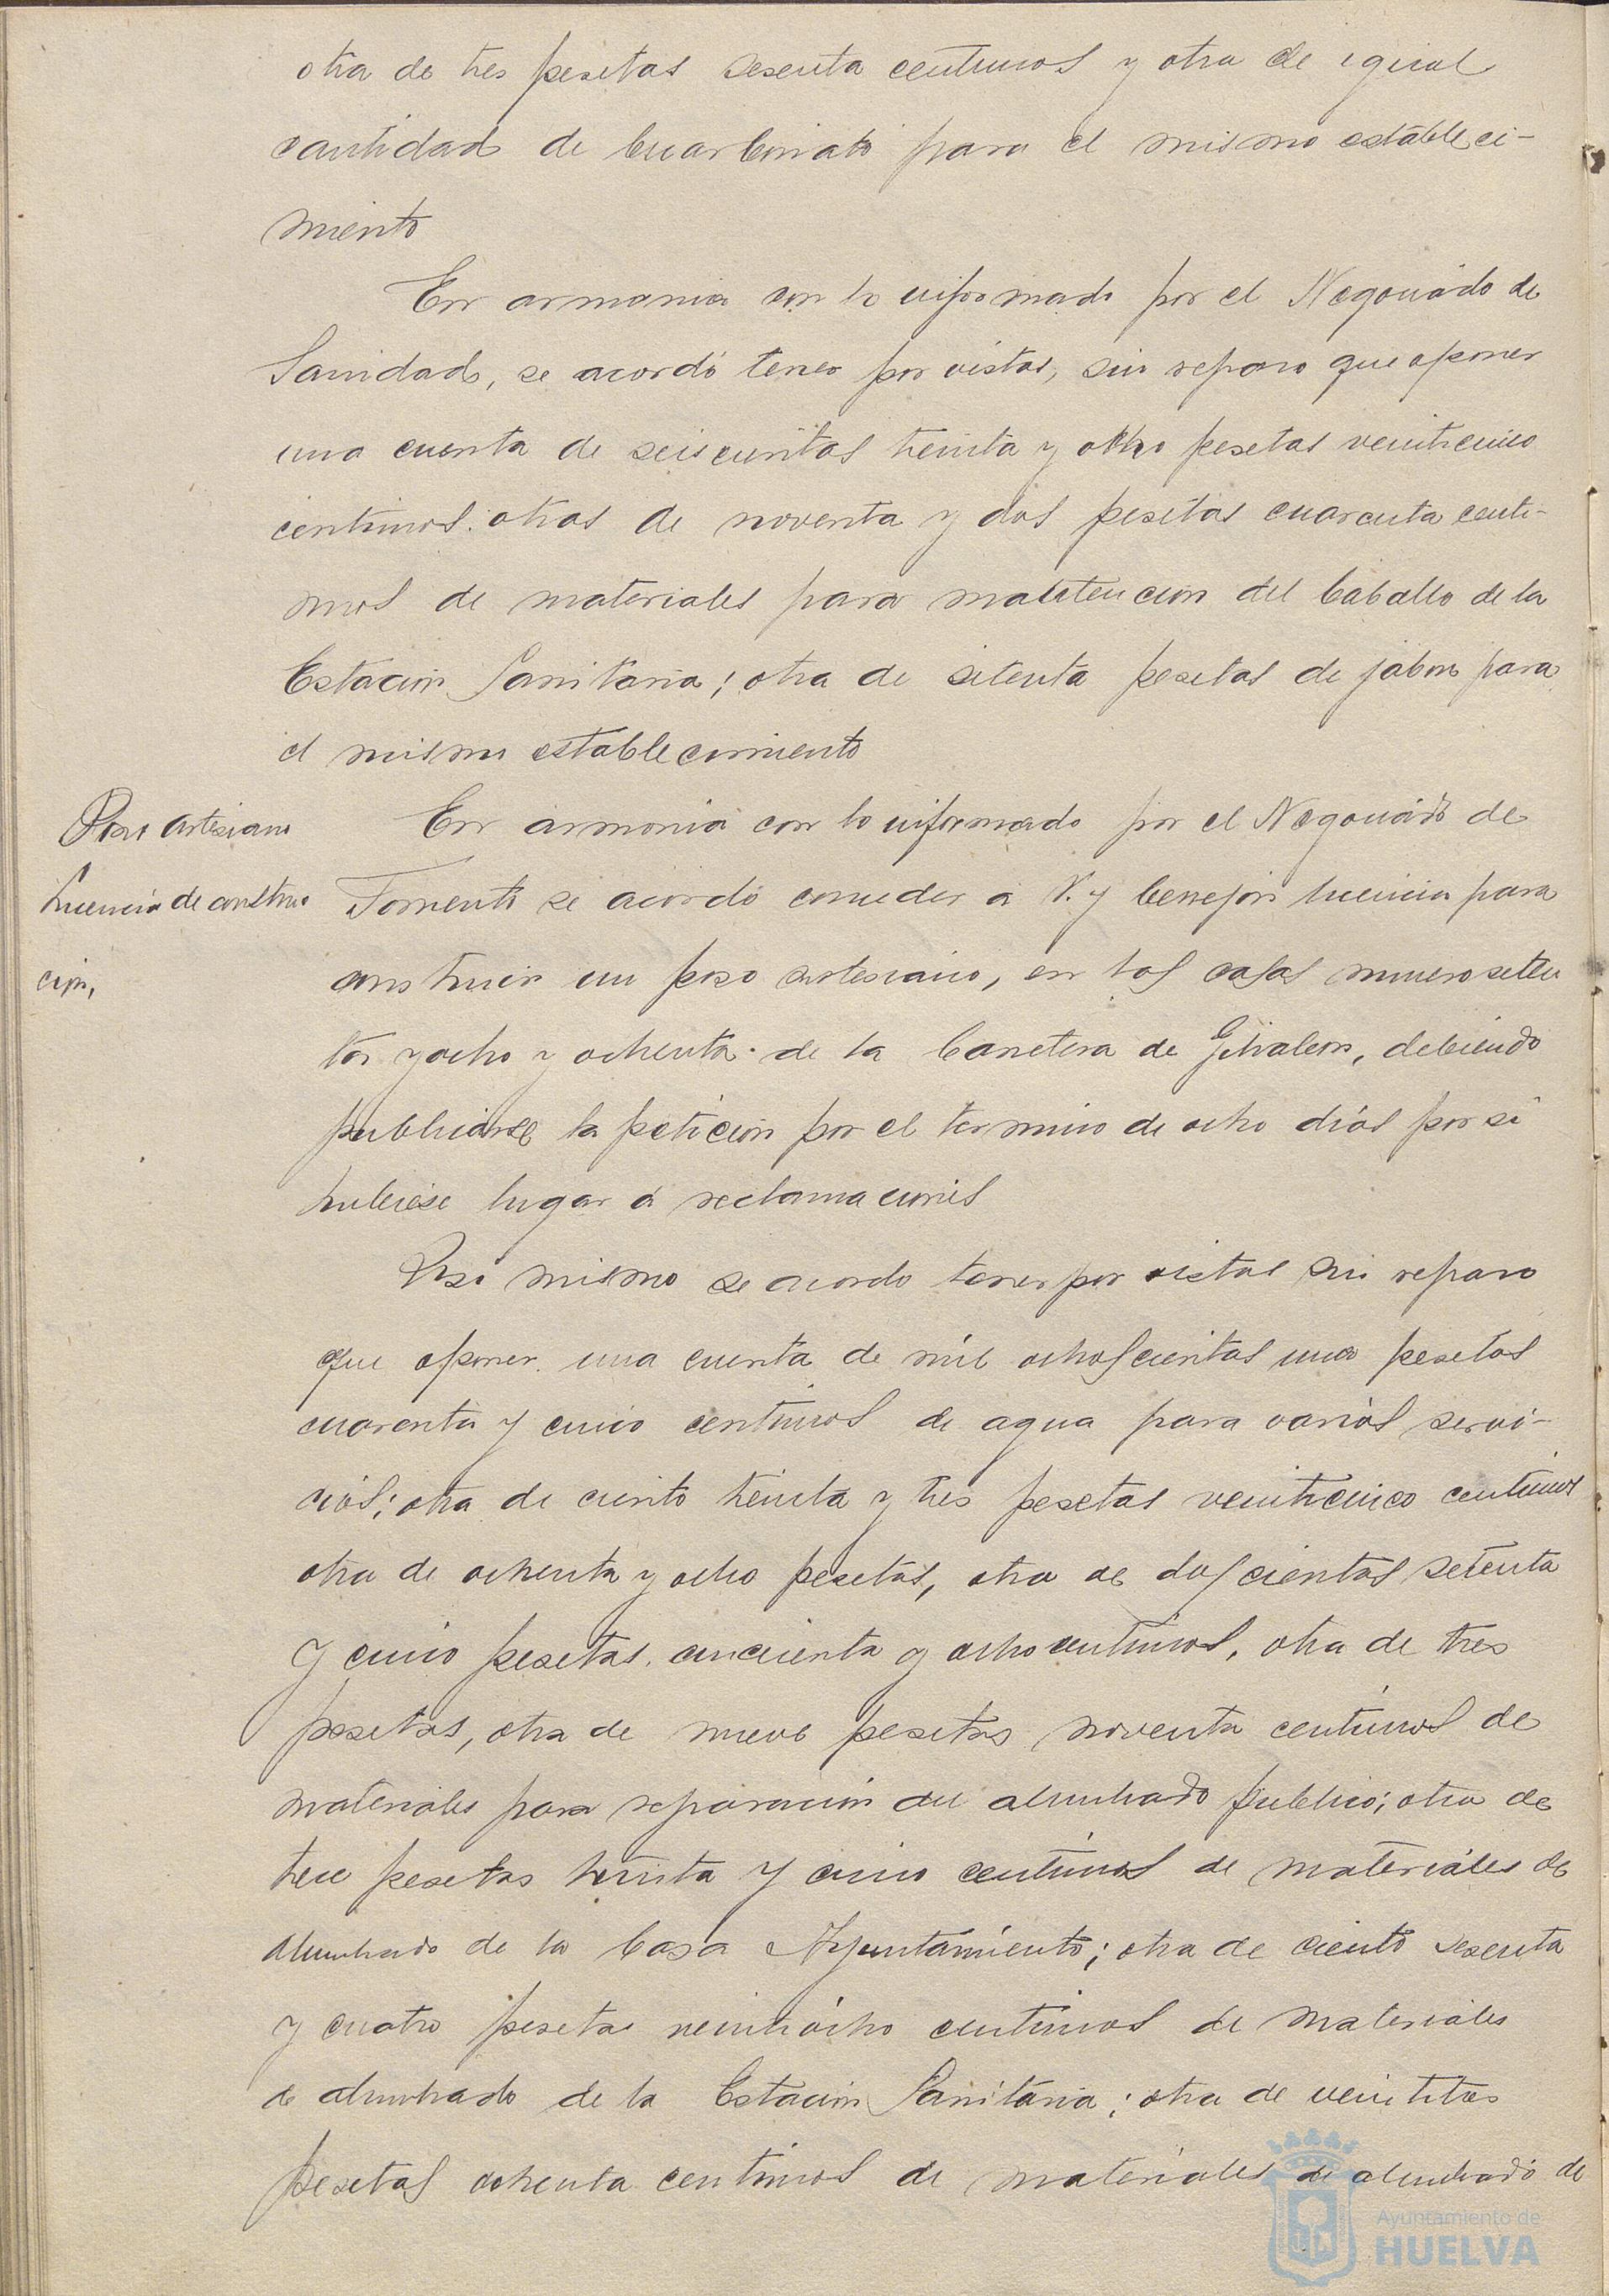 otra de tres pesetas sesenta centimos y otra de igual
cantidad de bicarbonato para el mismo estableci-
miento
En armonia con lo informado por el Negociado de
Sanidad, se acordó tener por vistas, sin reparo que oponer
una cuenta de seiscientas treinta y ocho pesetas veinticinco
centimos. otras de noventa y dos pesetas cuarenta centi-
mos de materiales para manutencion del Caballo de la
Estacion Sanitaria; otra de setenta pesetas de jabon para
el mismo establecimiento
Pozo artesiano
Licencia de construc
cion,
En armonia con lo informado por el Negociado de
Fomento se acordó conceder a V. y licencia para
construir un poso artesiano, en las casas numero seten
ta y ocho y ochenta de la Carretera de Gibraleon, debiendo
publicarse la peticion por el termino de ocho dias por si
hubiese lugar á reclamaciones
Asi mismo se acordo tener por vistas sin reparo
que oponer una cuenta de mil ochoscientas una pesetas
cuarenta y cinco centimos de agua para varios servi-
cios; otra de ciento treinta y tres pesetas veinticinco centimos
otra de ochenta y ocho pesetas, otra de doscientas setenta
y cinco pesetas cincuenta y ocho centimos, otra de tres
pesetas, otra de nueve pesetas noventa centimos de
materiales para reparacion del alumbrado publico; otra de
trece pesetas treinta y cinco centimos de materiales de
alumbrado de la Casa Ayuntamiento; otra de ciento sesenta
y cuatro pesetas veintiocho centimos de materiales
de alumbrado de la Estacion Sanitaria; otra de veintitres
pesetas ochenta centimos de materiales de alumbrado de
Ayuntamiento de
HUELVA